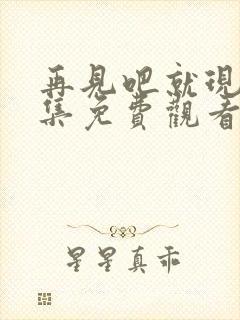 再見吧就現
集免費觀看
星星真乖